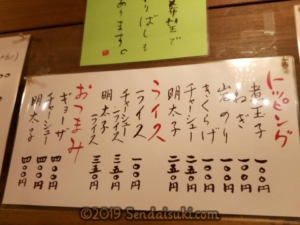 りばしも
あります。
トッピング
煮玉子 一〇〇円
ねぎ 一〇〇円
岩のり 一〇〇円
きくらげ 一〇〇円
チャーシュー 二五〇円
明太子 二五〇円
ライス
ライス 一〇〇円
チャーシューライス 三五〇円
明太子ライス 三五〇円
おつまみ
ギョーザ 四〇〇円
チャーシュー 四〇〇円
明太子 四〇〇円
©2019 Sendaisuki.com